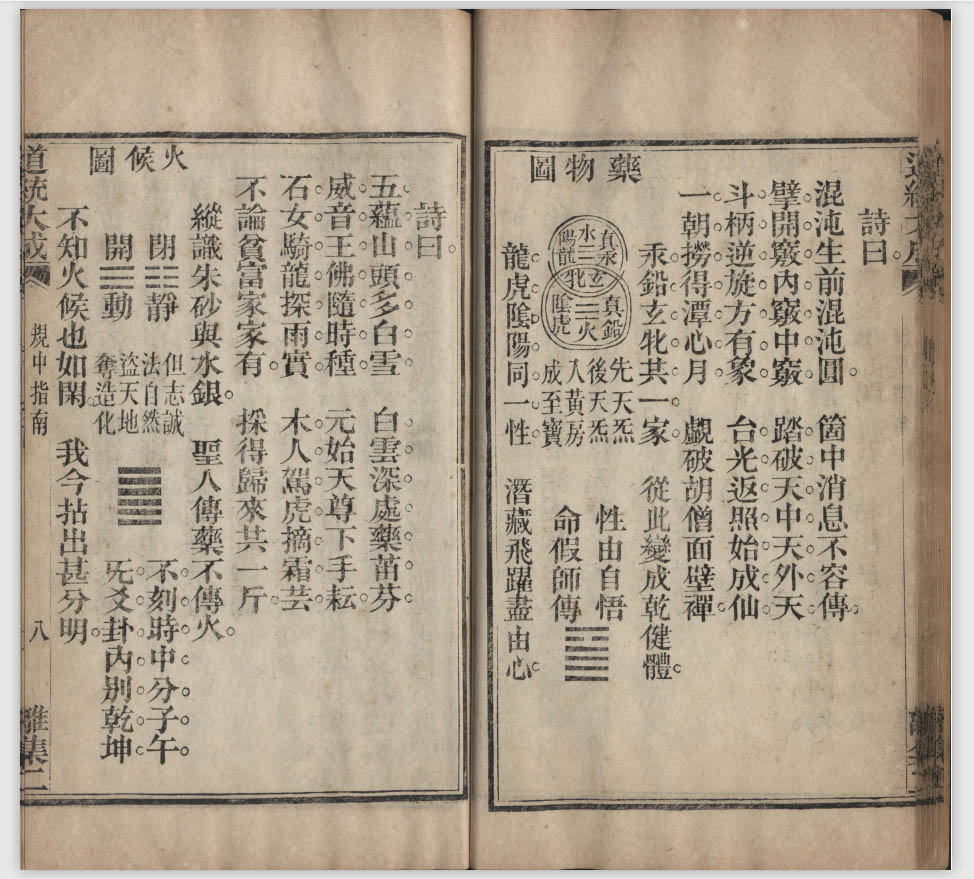 詩曰
混沌生前混沌圓。箇中消息不容傳。
擘開竅內竅中竅。踏破天中天外天。
斗柄逆旋方有象。台光返照始成仙。
一朝撈得潭心月。覷破胡僧面壁禪。
藥物圖
汞鉛玄牝共一家。從此變成乾健體。
真汞
水
陽龍
玄牝
真鉛
火
陰虎
先天炁
後天炁
入黃房
成至寶
性由自悟
命假師傳
龍虎陰陽同一性。潛藏飛躍盡由心。
詩曰。
五蘊山頭多白雪。白雲深處藥苗芬。
威音王佛隨時種。元始天尊下手耘。
石女騎龍探雨實。木人駕虎摘霜芸。
不論貧富家家有。採得歸來共一斤。
火候圖
縱識朱砂與水銀。聖人傳藥不傳火。
閉☷靜
但志誠
法自然
不刻時中分子午。
開☰動
盜天地
奪造化
旡爻卦內別乾坤。
不知火候也如閑。我今拈出甚分明。
道統大成 規中指南 八 離集二